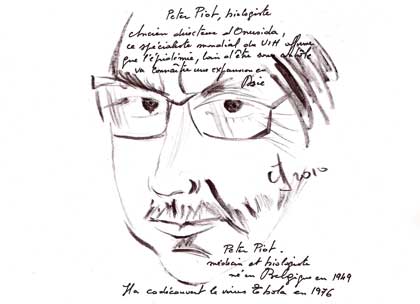 Peter Piot, biologiste
Ancien directeur d'Onusida,
ce spécialiste mondial du VIH affirme
que l'épidémie, loin d'être sous contrôle
va connaître une expansion en
Asie
2010
Peter Piot.
médecin et biologiste
né en Belgique en 1949
Il a codécouvert le virus Ebola en 1976